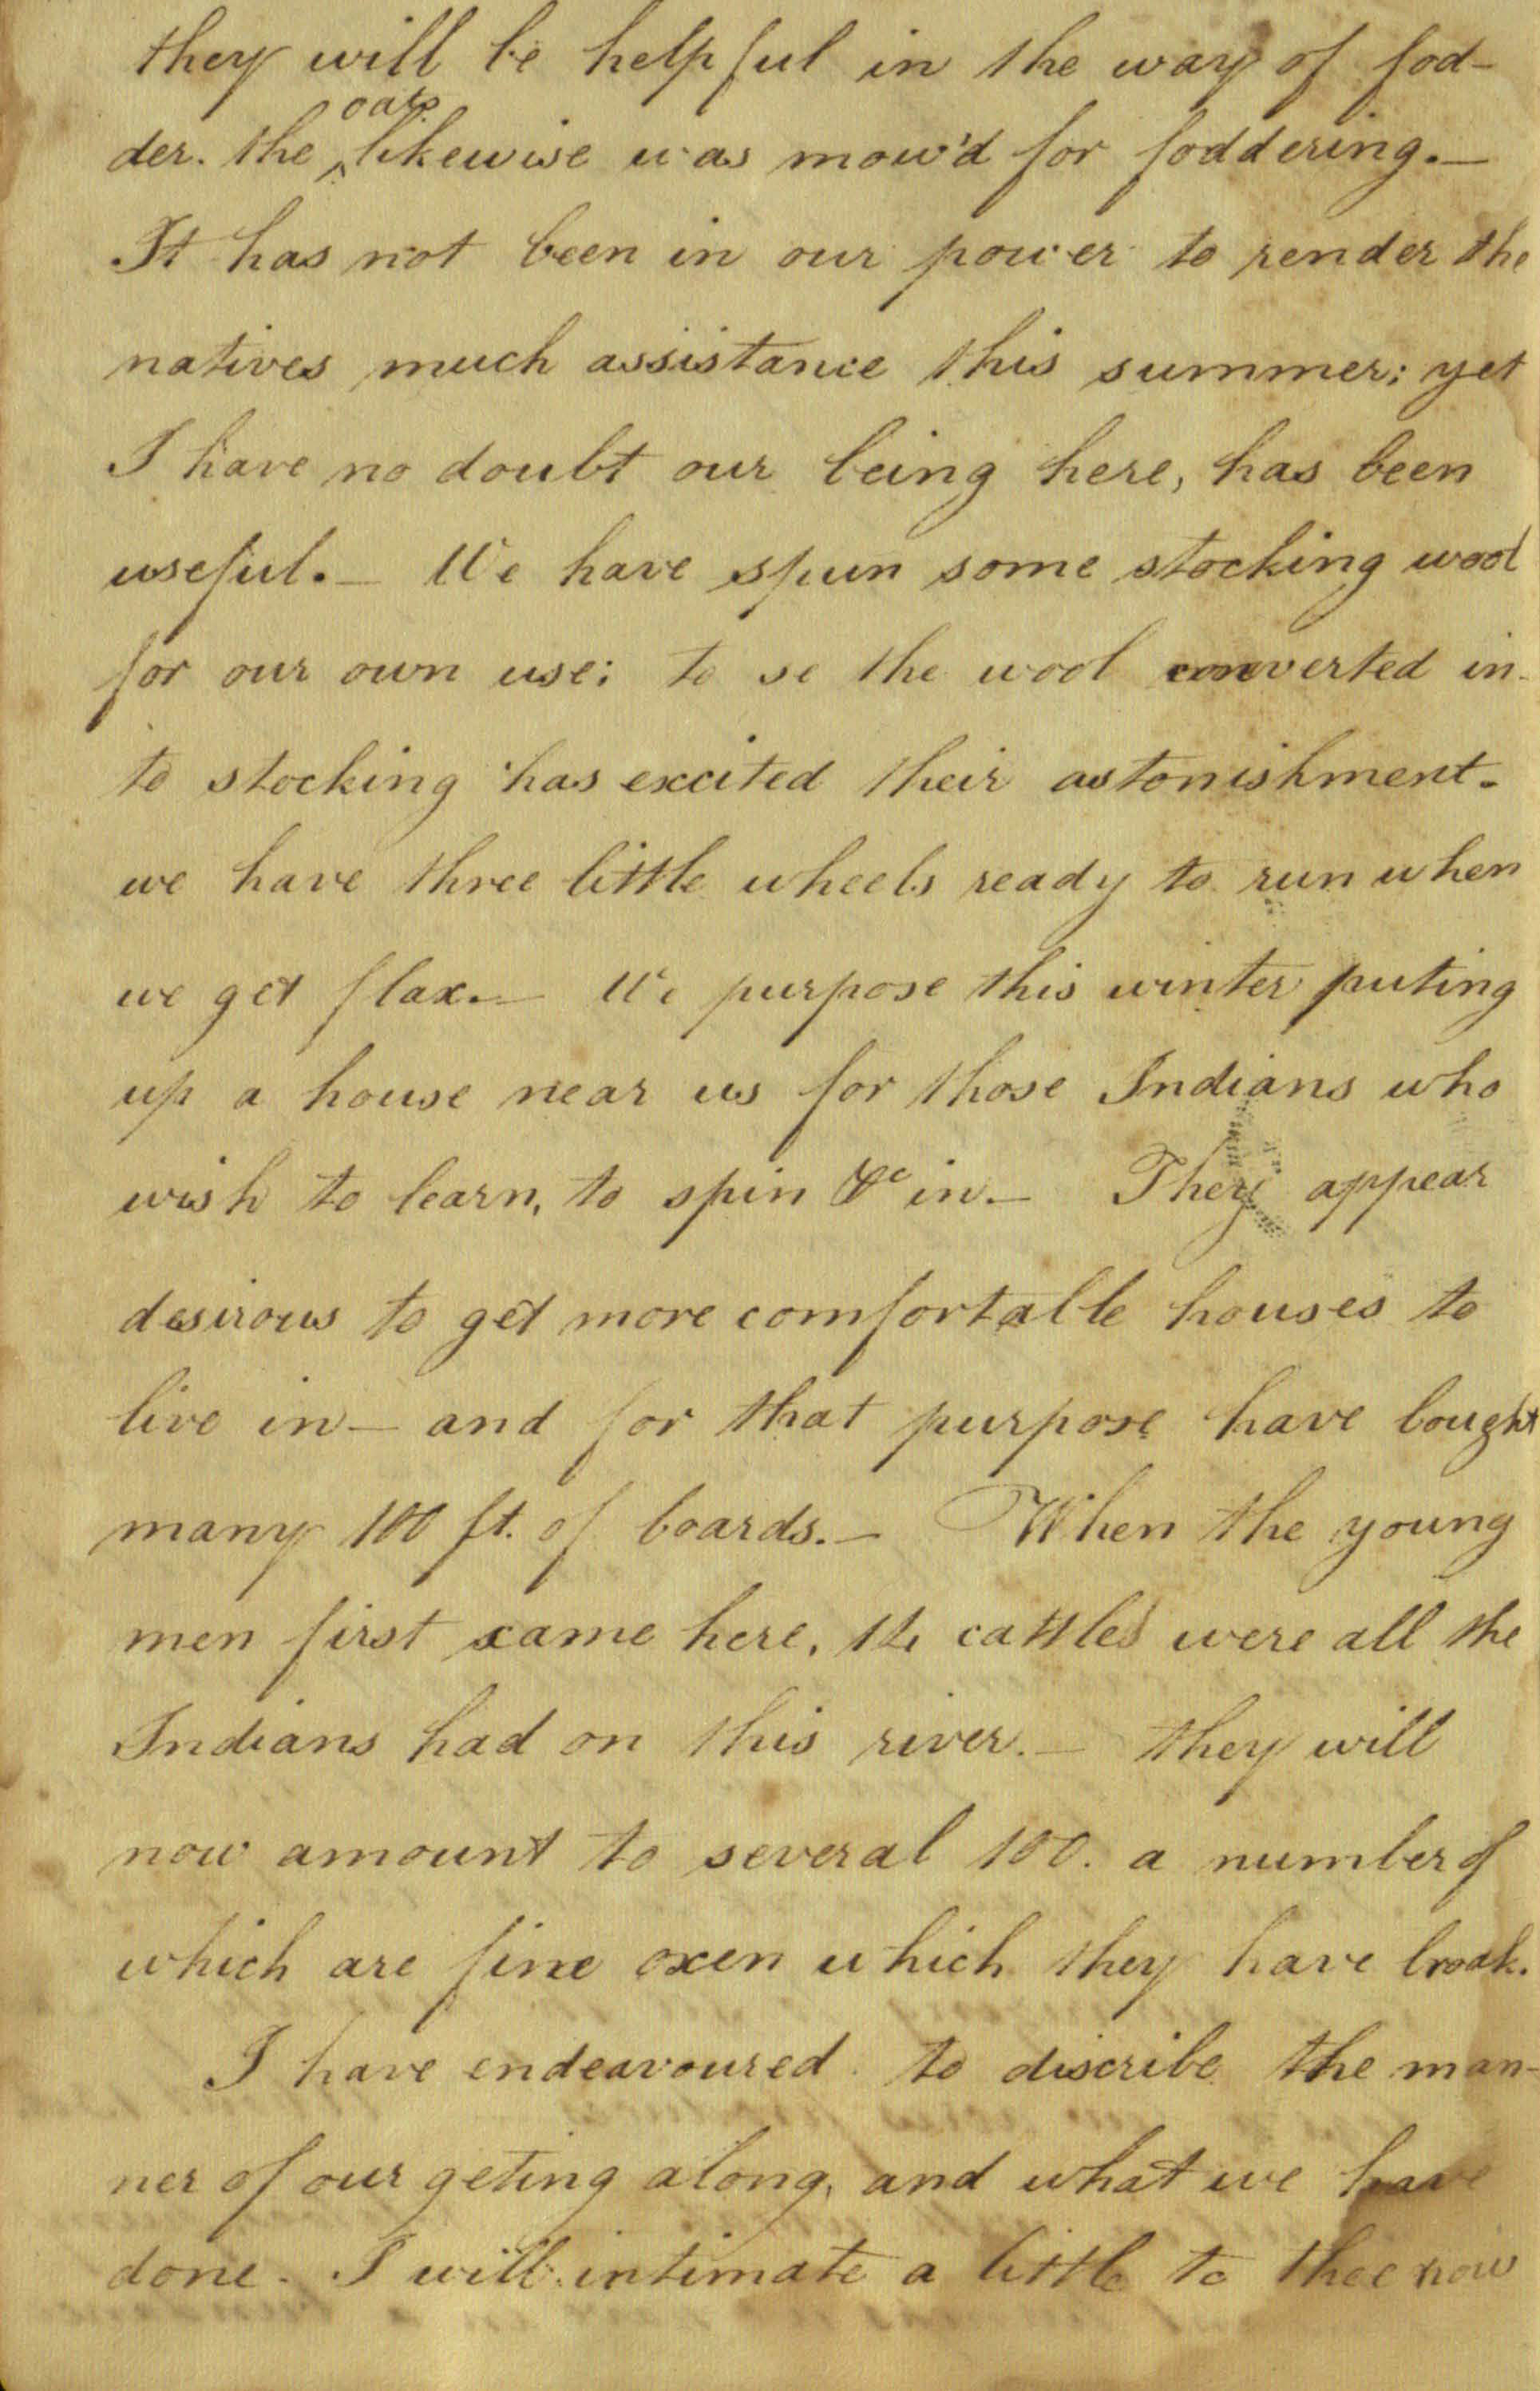 they will be helpful in the way of fod-
der. the ^oats likewise was mow'd for foddering.—
It has not been in our power to render the
natives much assistance this summer; yet
I have no doubt our being here, has been
useful.— We have spun some stocking wool
for our own use; to se the wool converted in-
to stocking has excited their astonishment.
we have three little wheels ready to run when
we get flax.— We purpose this winter puting
up a house near us for those Indians who
wish to learn, to spin &c in.— They appear
desirous to get more comfortable houses to
live in— and for that purpose have bought
many 100 ft. of boards.— When the young
men first came here, the cattles were all the
Indians had on this river.— they will
now amount to several 100. a number of
which are fine oxen which they have broak.
I have endeavoured to discribe the man-
ner of our geting along, and what we have
done. I will intimate a little to thee now